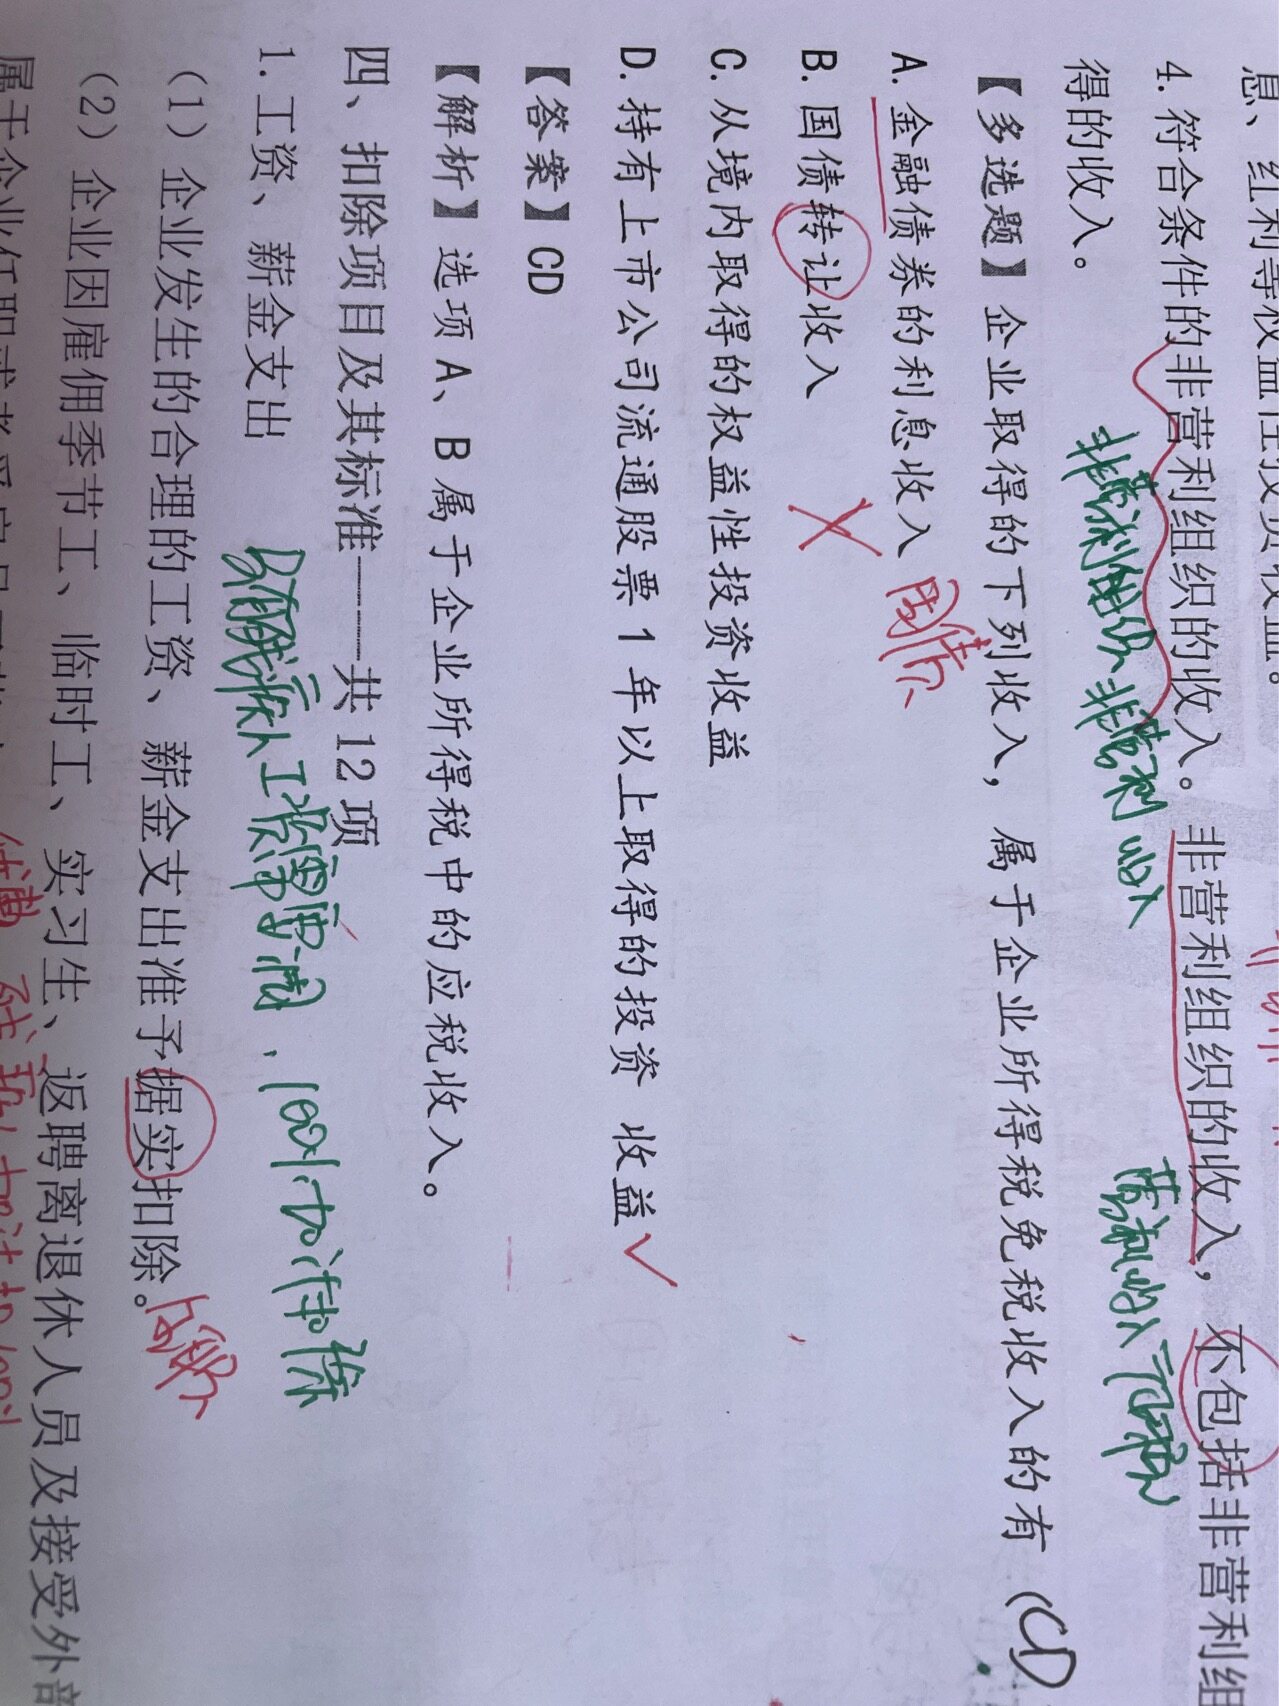 息、红利等权益性投资收益。
4. 符合条件的非营利组织的收入。非营利组织的收入，不包括非营利组
得的收入。
非营利组织 非营利 收入
营利收入
【多选题】企业取得的下列收入，属于企业所得税免税收入的有 (CD
A. 金融债券的利息收入 国债
B. 国债转让收入 ×
C. 从境内取得的权益性投资收益
D. 持有上市公司流通股票 1 年以上取得的投资 收益 ✓
【答案】CD
【解析】选项 A、B 属于企业所得税中的应税收入。
四、扣除项目及其标准———共 12 项
1. 工资、薪金支出
残疾人工资 100% 加计扣除
（1）企业发生的合理的工资、薪金支出准予据实扣除。
（2）企业因雇佣季节工、临时工、实习生、返聘离退休人员及接受外部